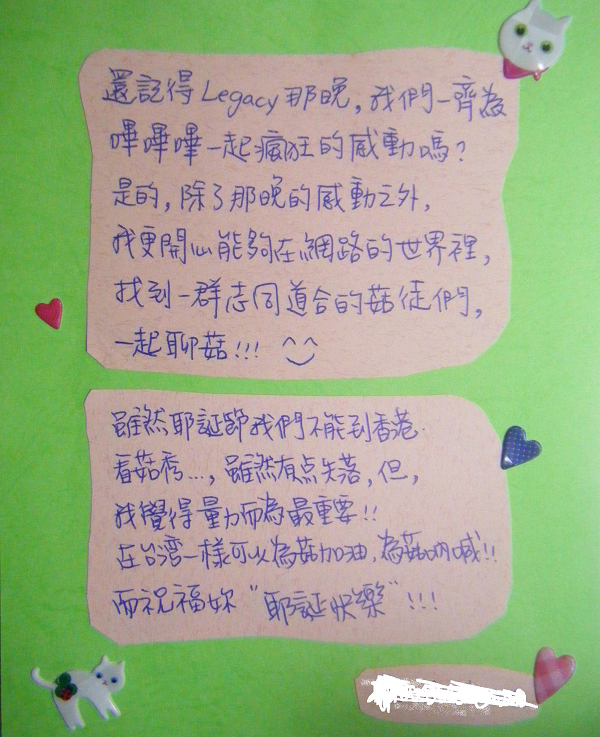 還記得Legacy那晚，我們一齊為
嗶嗶嗶一起瘋狂的感動嗎？
是的，除了那晚的感動之外，
我更開心能夠在網路的世界裡，
找到一群志同道合的菇徒們，
一起聊菇!!! ^_^
雖然耶誕節我們不能到香港
看菇秀…，雖然有点失落，但，
我覺得量力而為最重要!!
在台湾一樣可以為菇加油，為菇吶喊!!
而祝福妳“耶誕快樂”!!!